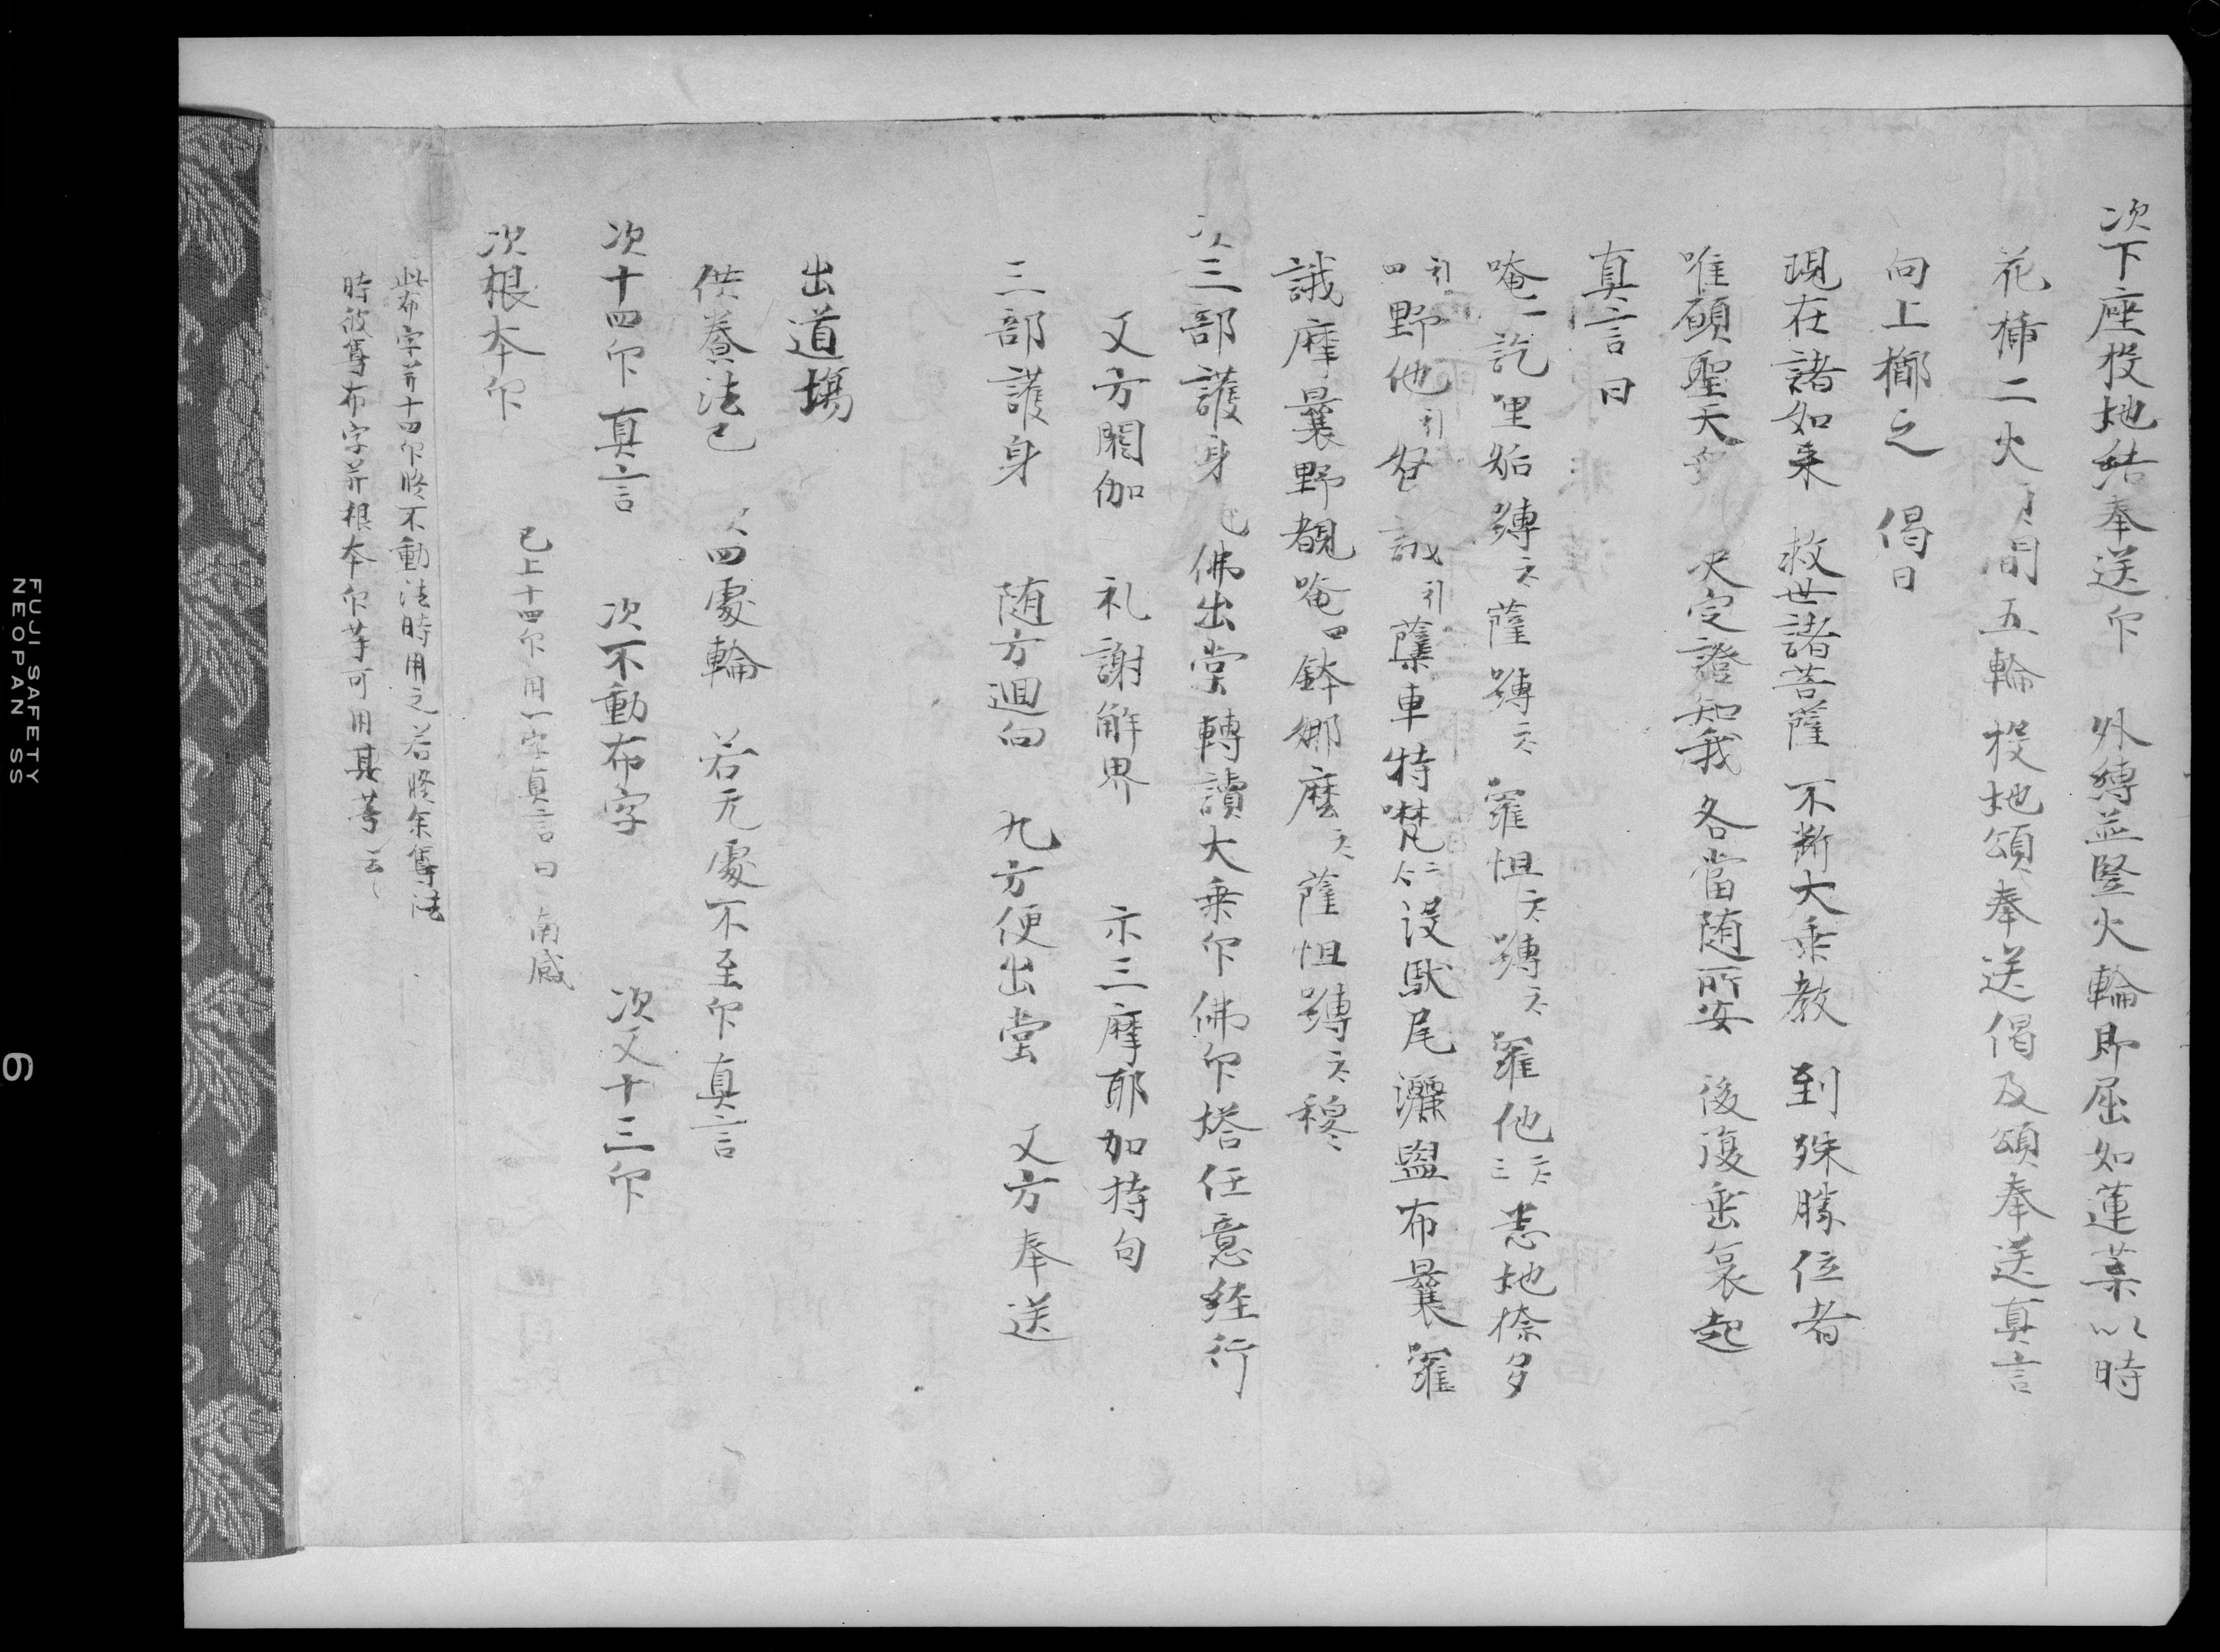 次下座投地結奉送印　外縛並竪火輪即屈如蓮葉以時
花揷二火間五輪投地頌奉送偈及頌奉送真言
向上擲之　偈曰
現在諸如来　救世諸菩薩　不断大乗教　到殊勝位者
唯願聖天　决定證知我　各當随所安　後復垂哀起
真言曰
唵一訖哩妬嚩二合薩嚩二合羅怛二合嚩二合羅他二合三悉地捺多
引四野他引努誐引蘖車特嚂二合設駄尾灑盥布曩羅
誐摩曩野覩唵四鉢娜麼二合薩怛嚩二合穆
次三部護身　佛出堂轉讀大乗印佛印塔任意経行
又方閼伽　礼謝解界　示三摩耶加持句
三部護身　随方迴向　九方便出堂　又方奉送
出道場
供養法已　四處輪　若无處不至印真言
次十四印真言　次不動布字　次又十三印
次根本印　已上十四印用一字真言曰　南
此布字并十四印修不動法時用之若修余尊法
時彼尊布字并根本印等可用其等云〻
FUJI SAFETY
NEOPAN SS
6